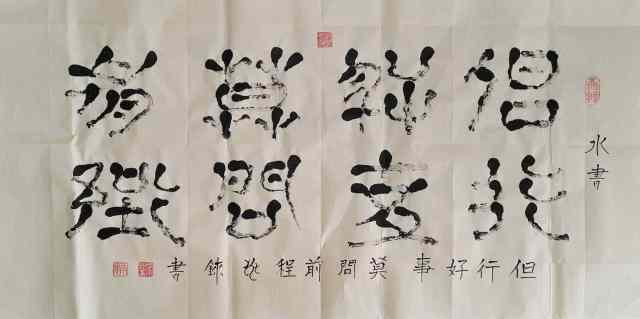 水書
但行
好事
莫問
前程
但行好事莫問前程書